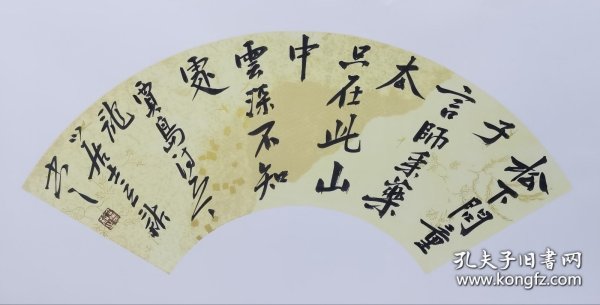 松下問童
子
言師采藥
去
只在此山
中
雲深不知
處
賈島詩
龍
書
孔夫子旧书网
www.kongfz.com